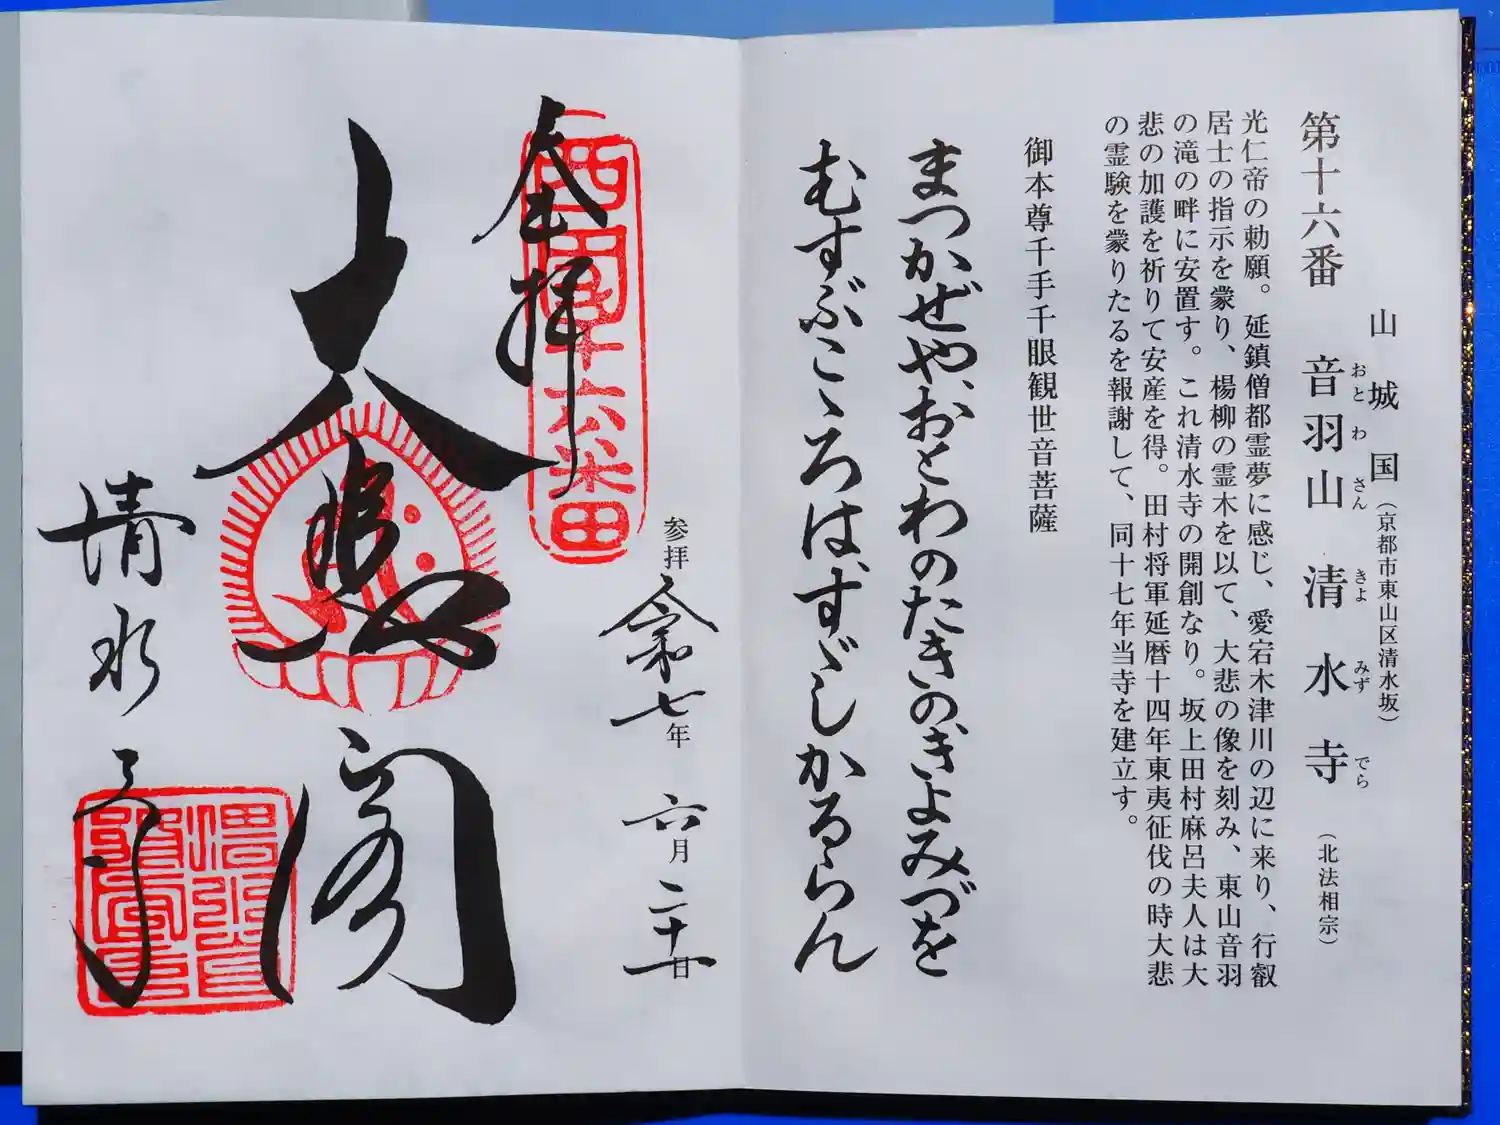 山城国（京都市東山区清水坂）
第十六番 音羽山 清水寺（北法相宗）
おとわさん きよみずでら
光仁帝の勅願。延鎮僧都霊夢に感じ、愛宕木津川の辺に来り、行叡
居士の指示を蒙り、楊柳の霊木を以て、大悲の像を刻み、東山音羽
の滝の畔に安置す。これ清水寺の開創なり。坂上田村麻呂夫人は大
悲の加護を祈りて安産を得。田村将軍延暦十四年東夷征伐の時大悲
の霊験を蒙りたるを報謝して、同十七年当寺を建立す。
御本尊千手千眼観世音菩薩
まつかぜや、おとわのたきのきよみづを
むすぶこゝろは、すゞしかるらん
西国十六番
奉拝
参拝 令和七年 六月二十一日
大悲閣
清水寺